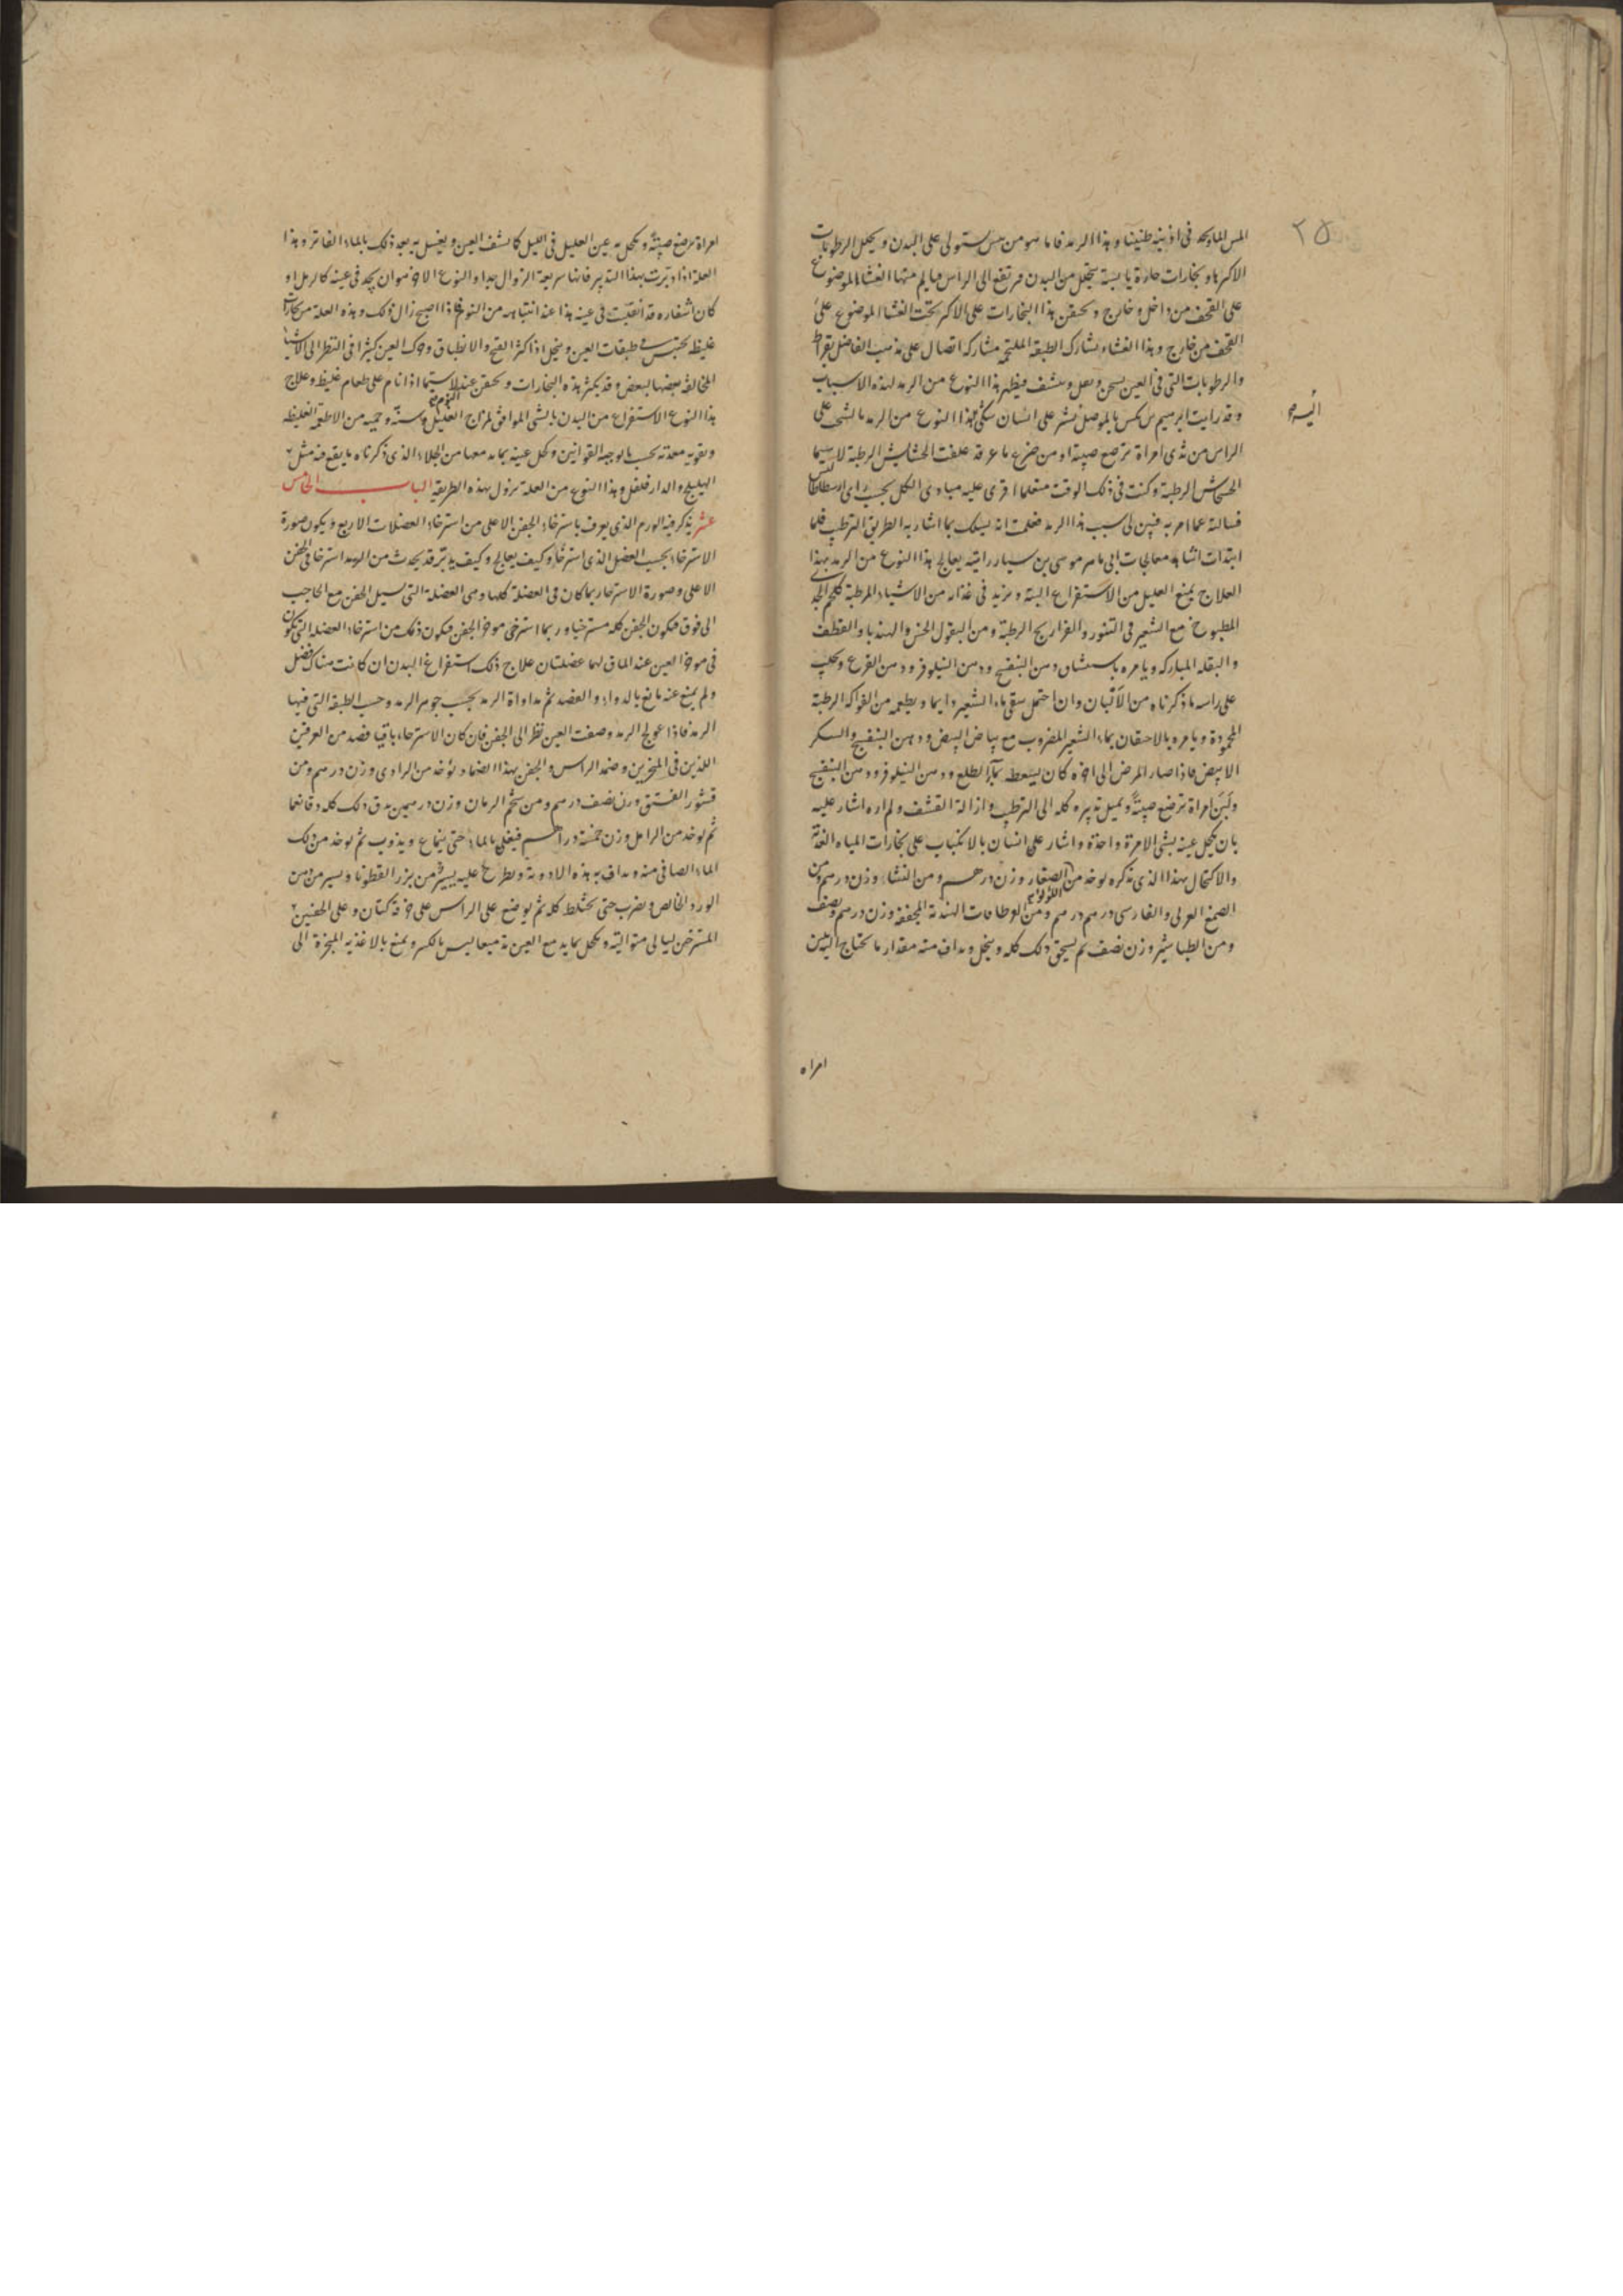 ٢٥
المس الما ويجد في اذنيه طنينا وهذا الرمد فاما هو من يبس يستولي على البدن ويحلل الرطوبات
الاكثر هاو بخارات حارة يابسة يتحلل من البدن فيرتفع الى الراس فيالم منها الغشا الموضوع
على القحف من داخل وخارج ويحتقن هذا البخارات على الاكثر تحت الغشا الموضوع على
القحف من خارج وهذا الغشاء يشارك الطبقة الملتحمة مشاركة اتصال على مذهب الفاضل بقراط
والرطوبات التي في العين يسخن ويقل وينشف فيظهر هذا النوع من الرمد لهذه الاسباب
وقد رايت ابرهيم بن بكس بالموصل يشير على انسان يشكي بهذا النوع من الرمد بالشخب على
الراس من ثدي امراة ترضع صبية او من ضرع ماعزة قد علفت الحشايش الرطبة لا سيما
الخشخاش الرطبة وكنت في ذلك الوقت متعلما اقرى عليه مبادي الكل بحسب راى ارسطاطاليس
فسالته عما امر به فبين لي سبب هذا الرمد فعلمت انه يسلك بما اشار به الطريق الترطيب فلما
ابتدات اشاهد معالجات ابي ماهر موسى بن سيار رايته يعالج هذا النوع من الرمد بهذا
العلاج يمنع العليل من الاستفراغ البتة ويزيد في غذائه من الاشياء المرطبة كلحم الجدي
المطبوخ مع الشعير في التنور والفراريج الرطبة ومن البقول الخس والهندبا والقطف
والبقلة المباركة ويامره باستنشاق دهن البنفسج ودهن النيلوفر ودهن القرع ويحلب
على راسه ما ذكرناه من الالبان وان احتمل سقي ماء الشعير دايما ويطعمه من الفواكه الرطبة
المحمودة ويامره بالاحتقان بماء الشعير المضروب مع بياض البيض ودهن البنفسج والسكر
الابيض فاذا صار المرض الى اخره كان يسعطه بماء الطلع ودهن النيلوفر ودهن البنفسج
ولبن امراة ترضع صبية ويميل تدبيره كله الى الترطيب وازالة القشف ولم اره اشار عليه
بان يكحل عينه بشي الا مرة واحدة واشار على انسان بالانكباب على بخارات المياه العذبة
والاكتحال بهذا الذي نذكره يوخذ من اللولو الصغار وزن درهم ومن النشا وزن درهم ومن
الصمغ العربي والفارسي درهم درهم ومن القطافات الهندية المجففة وزن درهم ونصف
ومن الطباشير وزن نصف ثم يسحق ذلك كله وينخل ويداف منه مقدار ما يحتاج اليه بلبن
امراه
امراة ترضع صبية ويكحل به عين العليل في الليل كما يشف العين ويغسل به بعد ذلك بالماء الفاتر وهذا
العلة اذا دبرت بهذا التدبير فانها سريعة الزوال جدا والنوع الاخر هو ان يجد في عينه كالرمل او
كان اشفاره قد انقلبت في عينه هذا عند انتباهه من النوم فاذا اصبح زال ذلك وهذه العلة من بخارات
غليظة تحتبس في طبقات العين وينحل اذا كثر الفتح والانطباق وحرك العين كثيرا في النظر الى الاشياء
المخالفة بعضها لبعض وقد يكثر هذه البخارات ويحتقن عند النوم لا سيما اذا نام على طعام غليظ وعلاج
هذا النوع الاستفراغ من البدن بالشي الموافق لمزاج العليل وسنه وحميته من الاطعمة الغليظة
وتقوية معدته بحسب ما يوجبه القوانين وكحل عينه بما يدمعها من الجلاء الذي ذكرناه ما يقع فيه مثل
الهليلج والدارفلفل وهذا النوع من العلة يزول بهذه الطريقة الباب الخامس
عشر يذكر فيه الورم الذي يعرف باسترخاء الجفن الاعلى من استرخاء العضلات الاربع ويكون صورة
الاسترخاء بحسب العضل الذي استرخى وكيف يعالج وكيف يدبر قد يحدث من الرمد استرخا في الجفن
الاعلى وصورة الاسترخا ربما كان في العضلة كلها وهي العضلة التي تشيل الجفن مع الحاجب
الى فوق فيكون الجفن كله مسترخيا وربما استرخى موخر الجفن فيكون ذلك من استرخاء العضلة التي تكون
في موخر العين عند الماق لهما عضلتان علاج ذلك استفراغ البدن ان كانت هناك فضل
ولم يمنع عنه مانع بالدواء والفصد ثم مداواة الرمد بحسب جوهر الرمد وحسب الطبقة التي فيها
الرمد فاذا عولج الرمد وصفت العين نظر الى الجفن فان كان الاسترخاء باقيا فصد من العرقين
اللذين في المنخرين وضمد الراس والجفن بهذا الضماد يوخذ من الرادى وزن درهم ومن
قشور الفستق وزن نصف درهم ومن شحم الرمان وزن درهمين يدق ذلك كله دقا ناعما
ثم يوخذ من الرامك وزن خمسة دراهم فيغلى بالماء حتى ينماع ويذوب ثم يوخذ من ذلك
الماء الصافي منه ويداف به هذه الادوية ويطرح عليه يسير من بزر القطونا ويسير من دهن
الورد الخالص ويضرب حتى يختلط كله ثم يوضع على الراس على خرقة كتان وعلى الجفنين
المسترخين ليالي متوالية ويكحل بما يدمع العين تدميعا ليس بالكثير ويمنع بالاغذية المبخرة الى